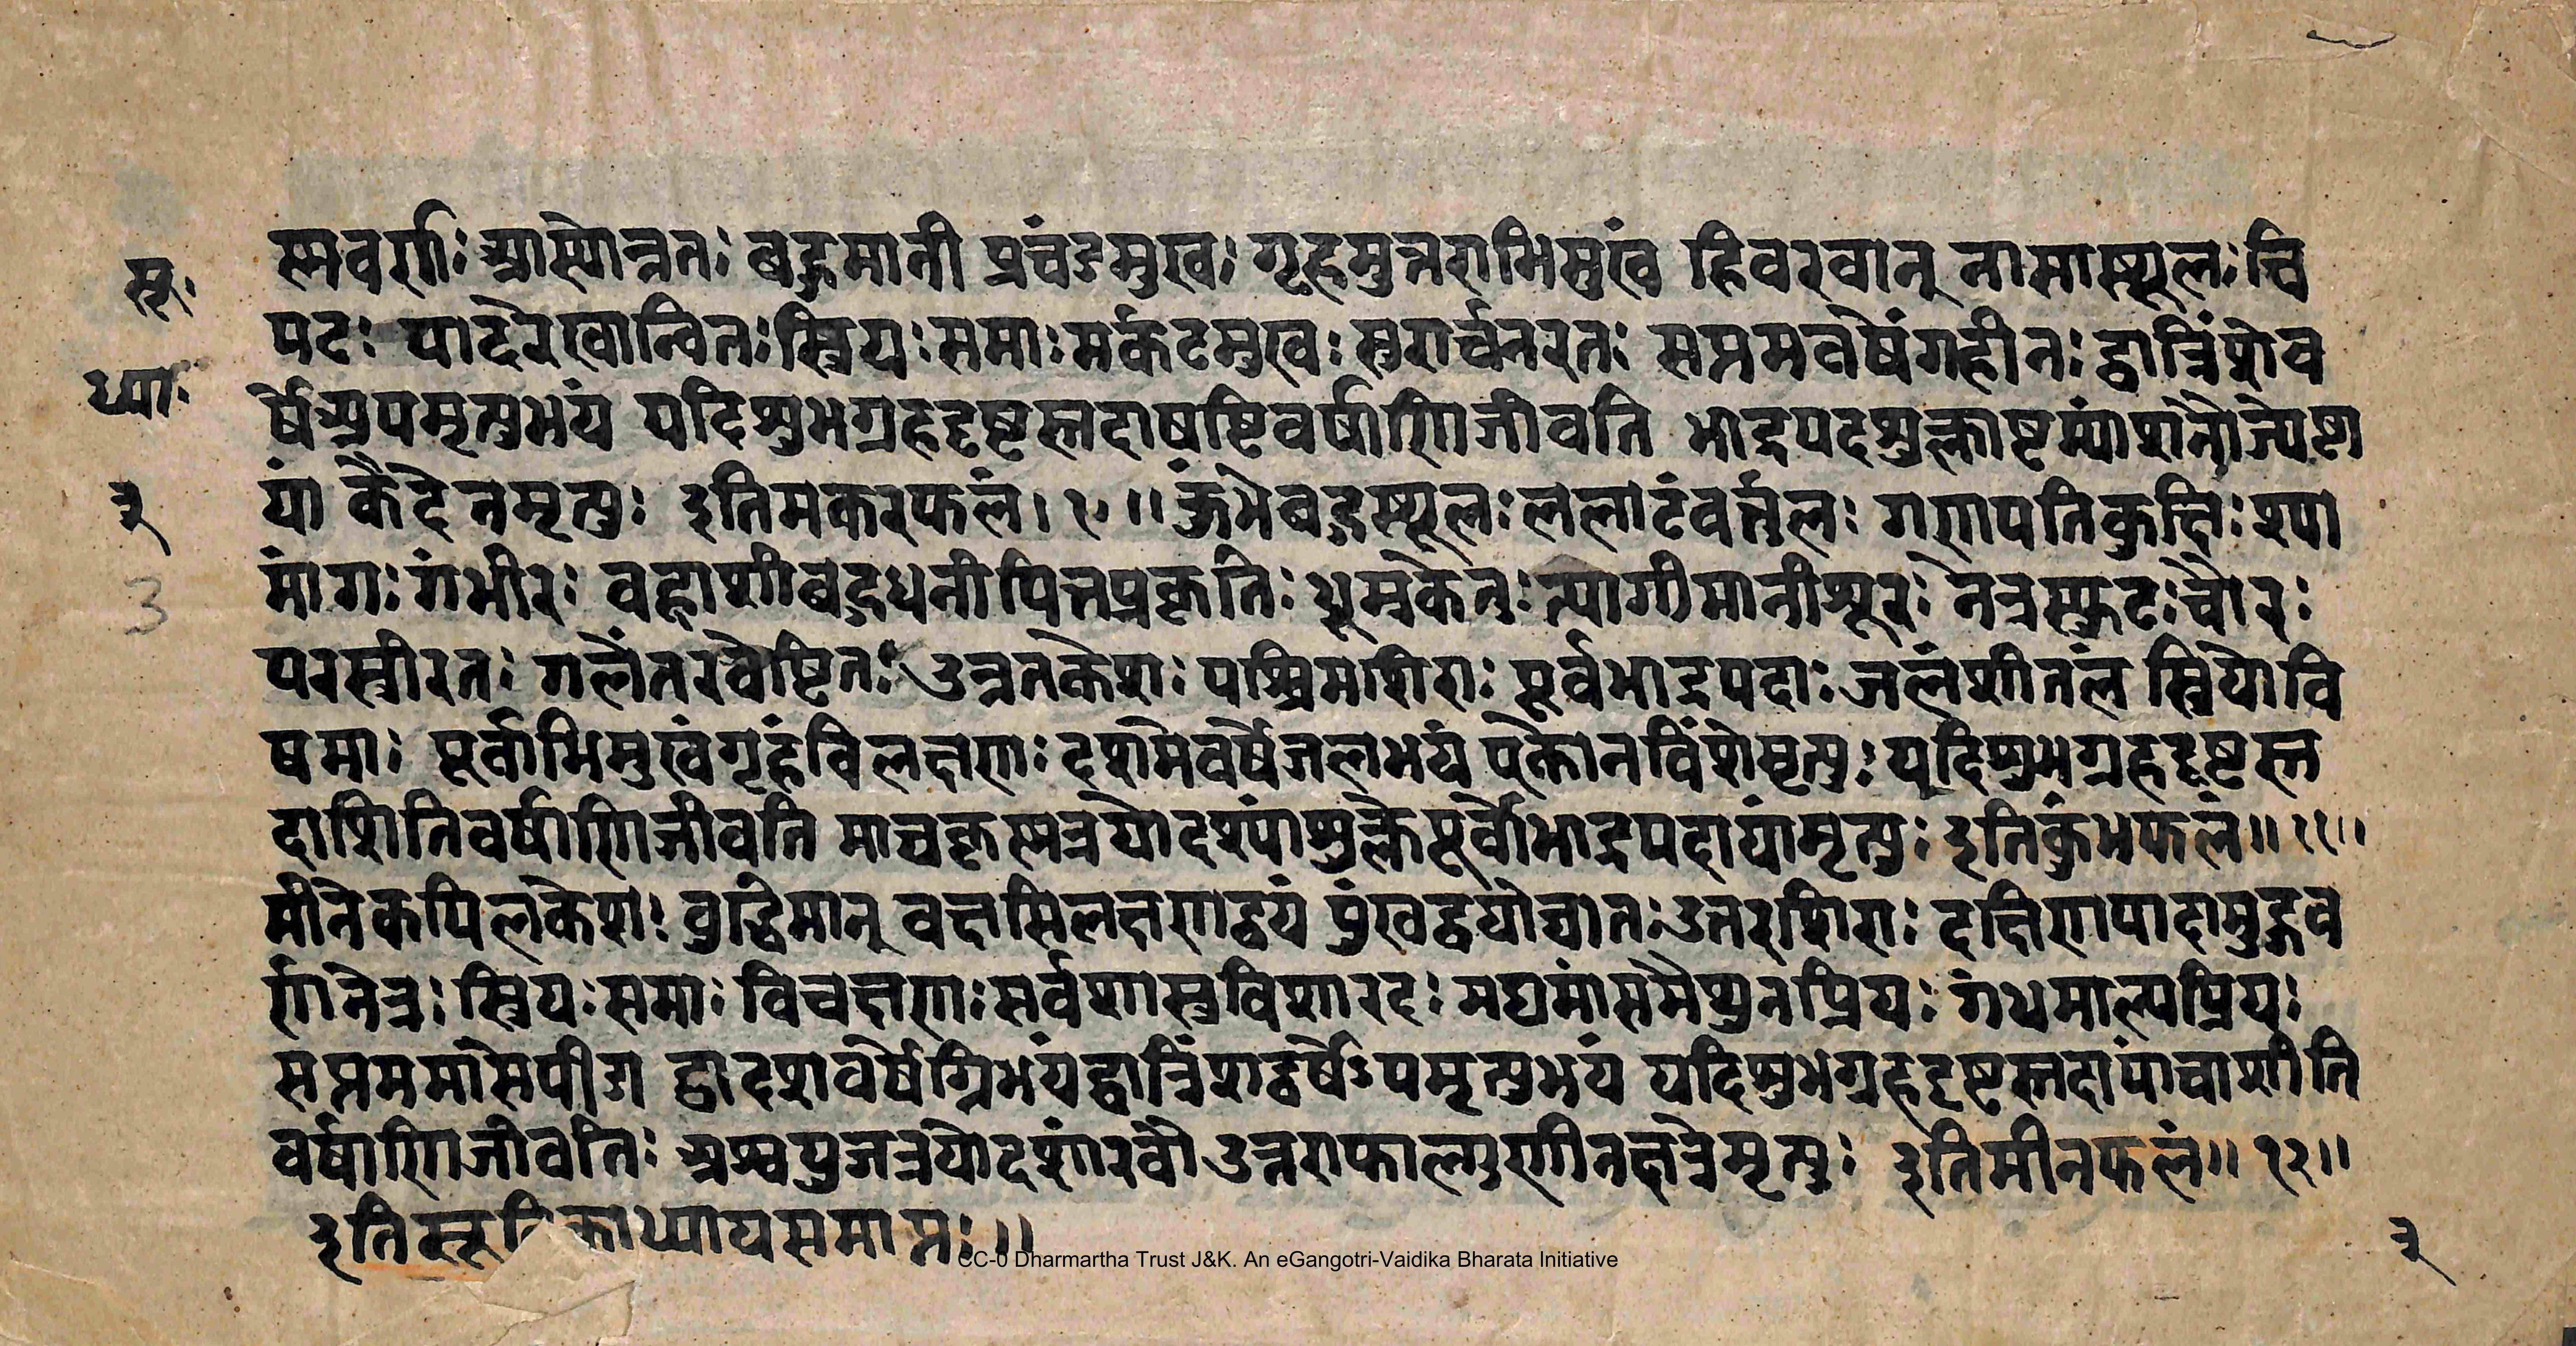 स्मवर्णाः आस्योन्नतः बहुमानी प्रचंडमुखः गृहमुत्तराभिमुखं हिवरवान् नामास्थूलः चि
पटः पादरेखान्वितः स्त्रियः समाः मर्कटमुखः सुरार्चनरतः सप्तमवर्षेगहीनः द्वात्रिंशेव
र्षेअपमृत्युभयं यदिशुभग्रहदृष्टस्तदाषष्टिवर्षाणिजीवति भाद्रपदशुक्लाष्टम्यांशनौज्येष्टा
यां मृत्युः इतिमकरफलं। १०॥ कुंभेबहुस्थूलः ललाटंवर्त्तुलः गणपतिकुक्षिः श्या
मांगः गंभीरः बह्वाशीबहुधनीपित्तप्रकृतिः त्यागीमानीशूरः नेत्रस्फुटः चौरः
परस्त्रीरतः उन्नतकेशः पश्चिमशिराः पूर्वभाद्रपदाः जलंशीतलं स्त्रियोवि
षमाः पूर्वाभिमुखंगृहंविलक्षणः दशमेवर्षेजलभयं एकोनविंशेमृत्युः यदिशुभग्रहदृष्टस्त
दाशितिवर्षाणिजीवति माघकृष्णत्रयोदश्यांशुक्लेपूर्वाभाद्रपदायांमृत्युः इतिकुंभफलं॥ ११॥
मीनेकपिलकेशः बुद्धिमान् वक्षसिलक्षणद्वयं पुंखद्वयोद्यातः उत्तरशिराः दक्षिणपादामुद्धव
र्णनेत्रः स्त्रियः समाः विचक्षणः सर्वशास्त्रविशारदः मद्यमांसमैथुनप्रियः गंधमाल्यप्रियः
सप्तममासेपीडा द्वादशवर्षेग्निभयंद्वात्रिंशद्वर्षेऽपमृत्युभयं यदिशुभग्रहदृष्टस्तदापंचाशीति
वर्षाणिजीवतिः अश्वयुजत्रयोदश्यांरवौ उत्तराफाल्गुणीनक्षत्रेमृत्युः इतिमीनफलं॥ १२॥
इतिसूतिकाध्यायसमाप्तः॥
सू.
ध्या.
३
3
३
CC-0 Dharmartha Trust J&K. An eGangotri-Vaidika Bharata Initiative